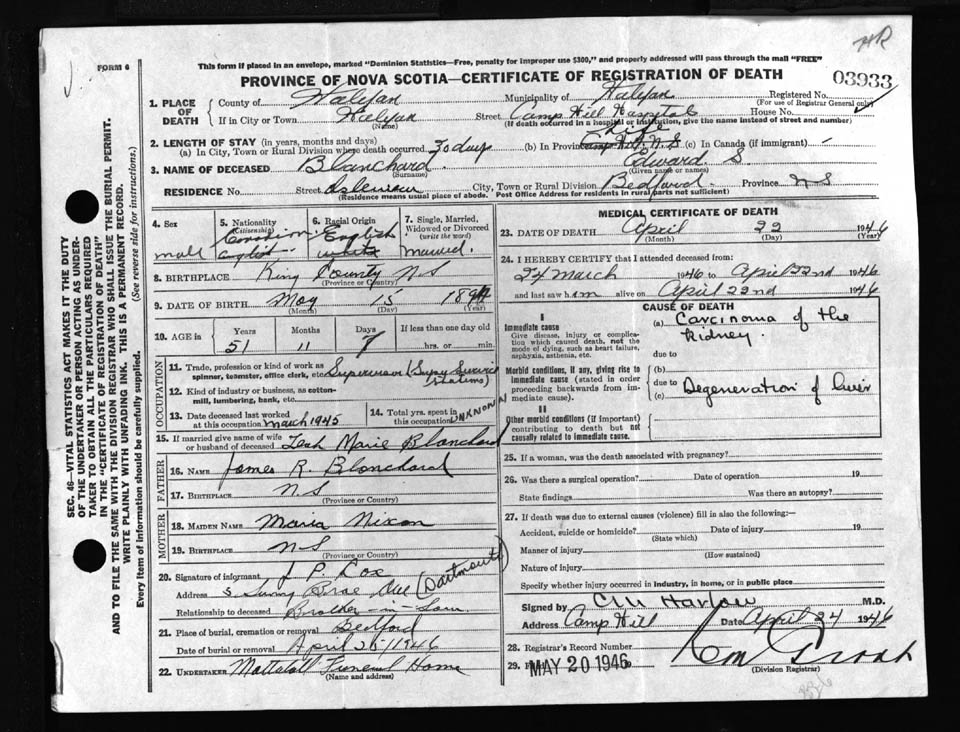 HR
FORM 6
This form if placed in an envelope, marked "Dominion Statistics—Free, penalty for improper use $300," and properly addressed will pass through the mail "FREE"
PROVINCE OF NOVA SCOTIA—CERTIFICATE OF REGISTRATION OF DEATH
03933
1. PLACE OF DEATH { County of Halifax Municipality of Halifax Registered No.
(For use of Registrar General only)
If in City or Town Halifax Street Camp Hill Hospital House No.
(Name) (If death occurred in a hospital or institution, give the name instead of street and number)
2. LENGTH OF STAY (in years, months and days) Life
(a) In City, Town or Rural Division where death occurred 30 days (b) In Province Camp Hill N S (c) In Canada (if immigrant) -
3. NAME OF DECEASED Blanchard Edward S
(Surname) (Given name or names)
RESIDENCE No. Street City, Town or Rural Division Bedford Province N S
(Residence means usual place of abode. Post Office Address for residents in rural parts not sufficient)
SEC. 46—VITAL STATISTICS ACT MAKES IT THE DUTY
OF THE UNDERTAKER OR PERSON ACTING AS UNDER-
TAKER TO OBTAIN ALL THE PARTICULARS REQUIRED
IN THE "CERTIFICATE OF REGISTRATION OF DEATH"
AND TO FILE THE SAME WITH THE DIVISION REGISTRAR WHO SHALL ISSUE THE BURIAL PERMIT.
WRITE PLAINLY WITH UNFADING INK. THIS IS A PERMANENT RECORD.
Every item of information should be carefully supplied. (See reverse side for instructions.)
4. Sex 5. Nationality (Citizenship) 6. Racial Origin 7. Single, Married, Widowed or Divorced (write the word)
male Canadian English English white married
8. BIRTHPLACE King County N S
(Province or Country)
9. DATE OF BIRTH May 15 1894
(Month) (Day) (Year)
10. AGE in { Years Months Days If less than one day old
51 11 7 hrs. or min.
OCCUPATION
11. Trade, profession or kind of work as spinner, teamster, office clerk, etc. Supervisor
12. Kind of industry or business, as cotton-mill, lumbering, bank, etc.
13. Date deceased last worked at this occupation March 1945 14. Total yrs. spent in this occupation UNKNOWN
15. If married give name of wife or husband of deceased Leah Marie Blanchard
FATHER
16. NAME James R. Blanchard
17. BIRTHPLACE N S
(Province or Country)
MOTHER
18. MAIDEN NAME Maria Nixon
19. BIRTHPLACE N S
(Province or Country)
20. Signature of informant J P Cox
Address Brae Ave (Dartmouth)
Relationship to deceased Brother-in-Law
21. Place of burial, cremation or removal Bedford
Date of burial or removal April 25/1946
22. UNDERTAKER Mattatall Funeral Home
(Name and address)
MEDICAL CERTIFICATE OF DEATH
23. DATE OF DEATH April 22 1946
(Month) (Day) (Year)
24. I HEREBY CERTIFY that I attended deceased from:
24 March 1946 to April 22nd 1946
and last saw him alive on April 22nd 1946
CAUSE OF DEATH
I
Immediate cause (a) Carcinoma of the
Give disease, injury or complication which caused death, not the mode of dying, such as heart failure, asphyxia, asthenia, etc. kidney.
due to
Morbid conditions, if any, giving rise to immediate cause (stated in order proceeding backwards from immediate cause). (b)
due to
(c) Degeneration of liver
II
Other morbid conditions (if important) contributing to death but not causally related to immediate cause.
25. If a woman, was the death associated with pregnancy?
26. Was there a surgical operation? Date of operation 19
State findings Was there an autopsy?
27. If death was due to external causes (violence) fill in also the following:—
Accident, suicide or homicide? Date of injury 19
(State which)
Manner of injury
(How sustained)
Nature of injury
Specify whether injury occurred in industry, in home, or in public place
Signed by C M Harlow M.D.
Address Camp Hill Date April 24 1946
28. Registrar's Record Number
29. MAY 20 1946
(Division Registrar)